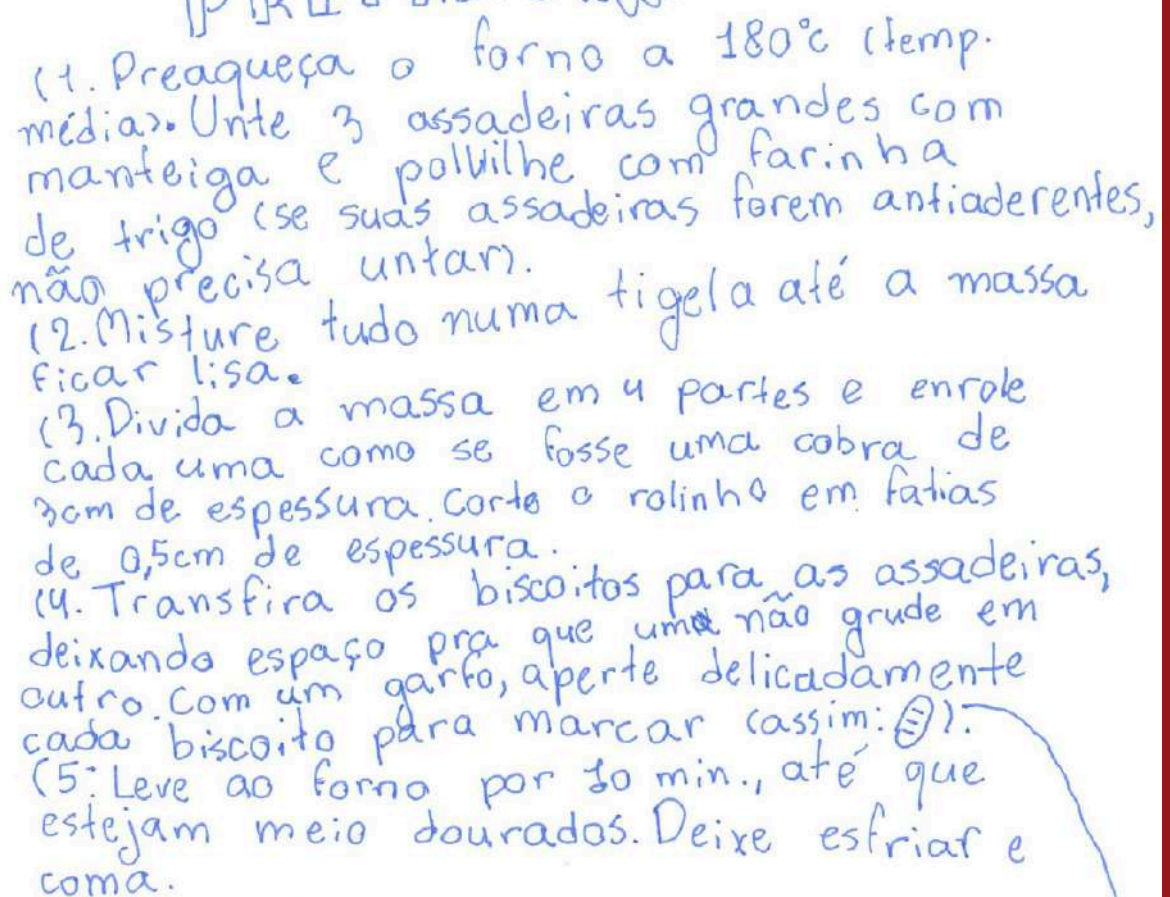 (1. Preaqueça o forno a 180°c (temp.
média). Unte 3 assadeiras grandes com
manteiga e polvilhe com farinha
de trigo (se suas assadeiras forem antiaderentes,
não precisa untar).
(2. Misture tudo numa tigela até a massa
ficar lisa.
(3. Divida a massa em 4 partes e enrole
cada uma como se fosse uma cobra de
3cm de espessura. Corte o rolinho em fatias
de 0,5cm de espessura.
(4. Transfira os biscoitos para as assadeiras,
deixando espaço pra que uma não grude em
outro. Com um garfo, aperte delicadamente
cada biscoito para marcar (assim: ).
(5. Leve ao forno por 10 min., até que
estejam meio dourados. Deixe esfriar e
coma.